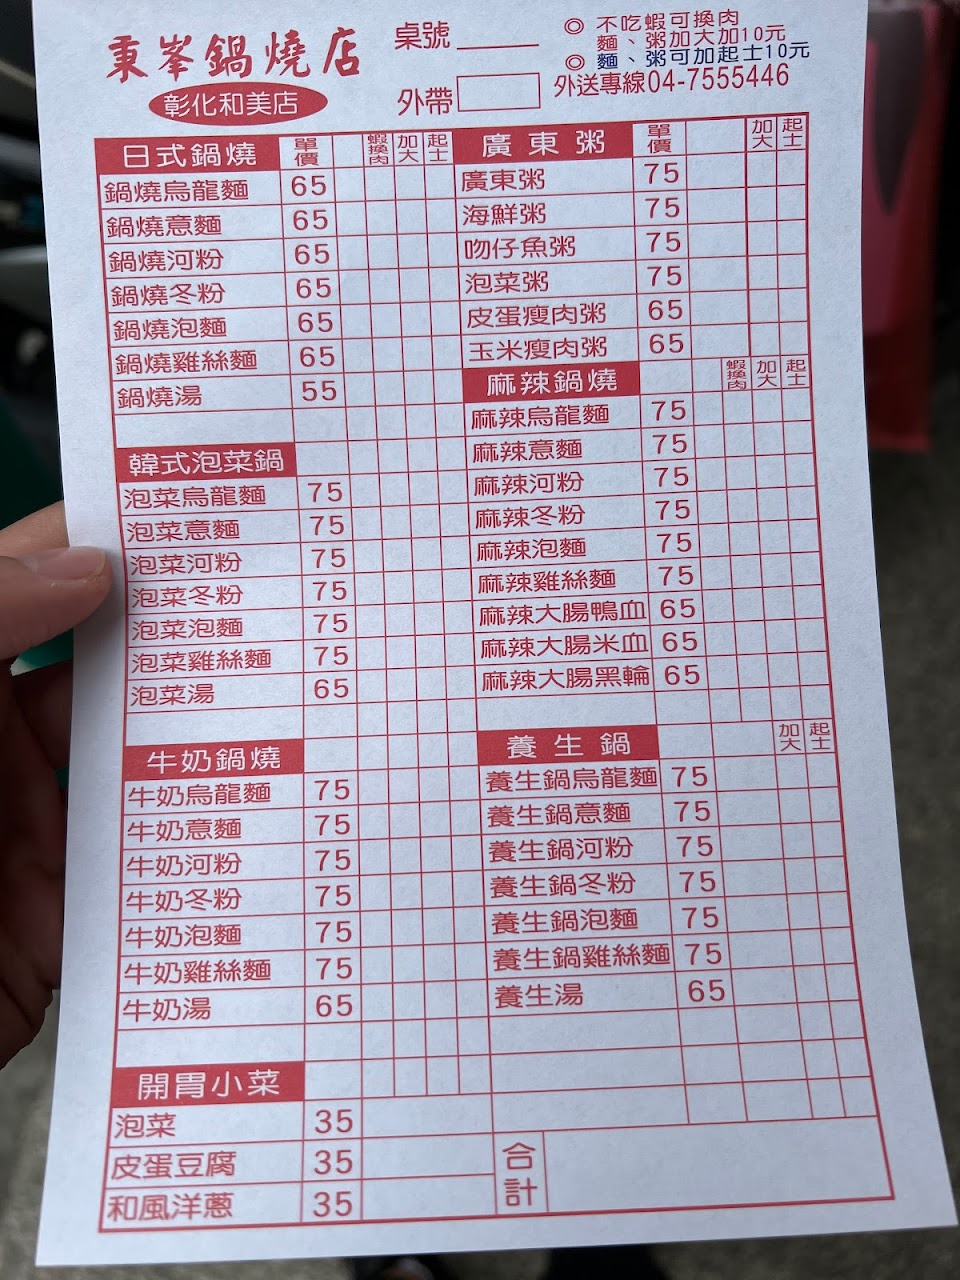 東峯鍋燒店
彰化和美店
桌號
外帶
◎ 不吃蝦可換肉
麵、粥加大加10元
◎ 麵、粥可加起士10元
外送專線04-7555446
日式鍋燒 單價 蝦換肉 加大 起士
鍋燒烏龍麵 65
鍋燒意麵 65
鍋燒河粉 65
鍋燒冬粉 65
鍋燒泡麵 65
鍋燒雞絲麵 65
鍋燒湯 55
韓式泡菜鍋
泡菜烏龍麵 75
泡菜意麵 75
泡菜河粉 75
泡菜冬粉 75
泡菜泡麵 75
泡菜雞絲麵 75
泡菜湯 65
牛奶鍋燒
牛奶烏龍麵 75
牛奶意麵 75
牛奶河粉 75
牛奶冬粉 75
牛奶泡麵 75
牛奶雞絲麵 75
牛奶湯 65
開胃小菜
泡菜 35
皮蛋豆腐 35
和風洋蔥 35
廣東粥 單價 加大 起士
廣東粥 75
海鮮粥 75
吻仔魚粥 75
泡菜粥 75
皮蛋瘦肉粥 65
玉米瘦肉粥 65
麻辣鍋燒 蝦換肉 加大 起士
麻辣烏龍麵 75
麻辣意麵 75
麻辣河粉 75
麻辣冬粉 75
麻辣泡麵 75
麻辣雞絲麵 75
麻辣大腸鴨血 65
麻辣大腸米血 65
麻辣大腸黑輪 65
養生鍋 加大 起士
養生鍋烏龍麵 75
養生鍋意麵 75
養生鍋河粉 75
養生鍋冬粉 75
養生鍋泡麵 75
養生鍋雞絲麵 75
養生湯 65
合計